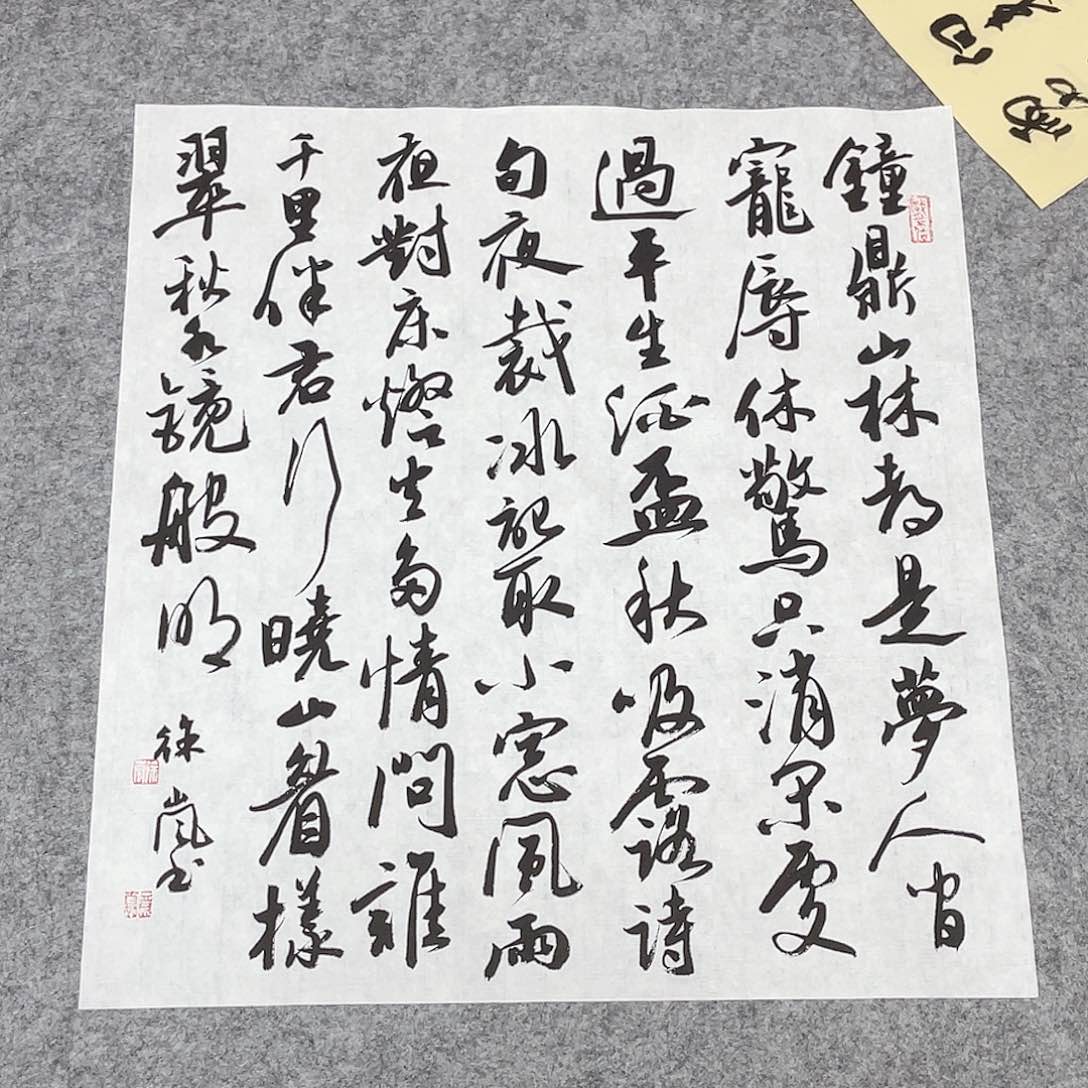 鐘鼎山林都是夢人間
寵辱休驚只消閑處
過平生酒盃秋吸露詩
句夜裁冰記取小窓風雨
夜對床燈火多情問誰
千里伴君行曉山眉樣
翠秋水鏡般明
徐嵐书